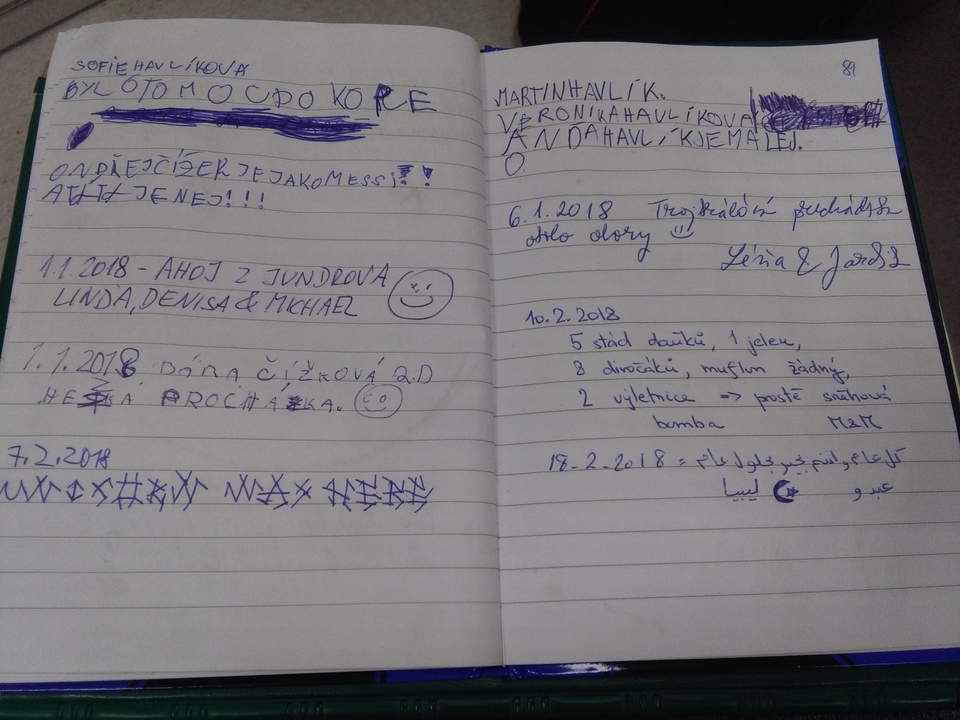 SOFIE HAVLÍKOVA
BYLOTOMOCDOKOPCE
ONDŘEJČÍŽEK JEJAKOMESSI!!
JENEJ!!!
1.1.2018 - AHOJ Z JUNDROVA
LINDA, DENISA & MICHAEL
1.1.2018 DÁNA ČÍŽKOVÁ 2.D
HEZKÁ PROCHÁZKA.
7.2.2018
81
MARTINHAVLÍK.
VERONIKAHAVLÍKOVA
ANDAHAVLÍKJEMALEJ.
O.
6.1.2018 Trojkrálová procházka
okolo obory
& Jarda
10.2.2018
5 stád daňků, 1 jelen,
8 divočáků, muflon žádný,
2 výletnice => prostě sněhová
bomba M&M
18-2-2018 = كل عام وانتم بخير
عبدو ليبيا